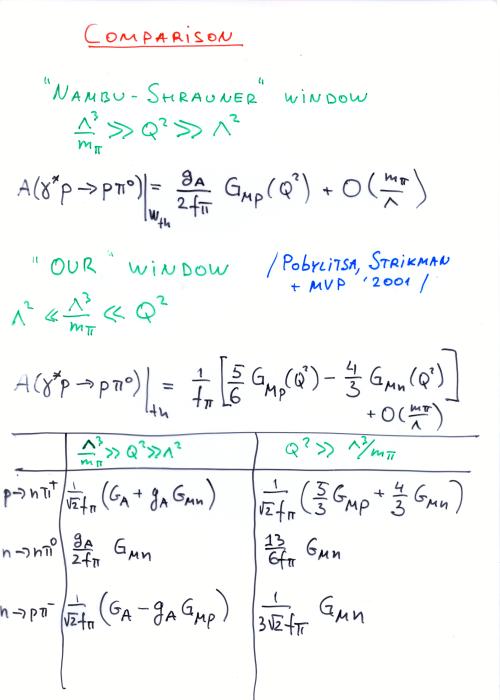 COMPARISON
"NAMBU-SHRAUNER" WINDOW
Λ³/mπ ≫ Q² ≫ Λ²
A(γ*p→pπ⁰)|_Wth = gA/2fπ GMp(Q²) + O(mπ/Λ)
"OUR" WINDOW /POBYLITSA, STRIKMAN
+ MVP '2001/
Λ² ≪ Λ³/mπ ≪ Q²
A(γ*p→pπ⁰)|_th = 1/fπ [5/6 GMp(Q²) − 4/3 GMn(Q²)]
+O(mπ/Λ)
Λ³/mπ ≫ Q² ≫ Λ² Q² ≫ Λ³/mπ
p→nπ⁺ 1/√2fπ (GA + gA GMn) 1/√2fπ (5/3 GMp + 4/3 GMn)
n→nπ⁰ gA/2fπ GMn 13/6fπ GMn
n→pπ⁻ 1/√2fπ (GA − gA GMp) 1/3√2fπ GMn